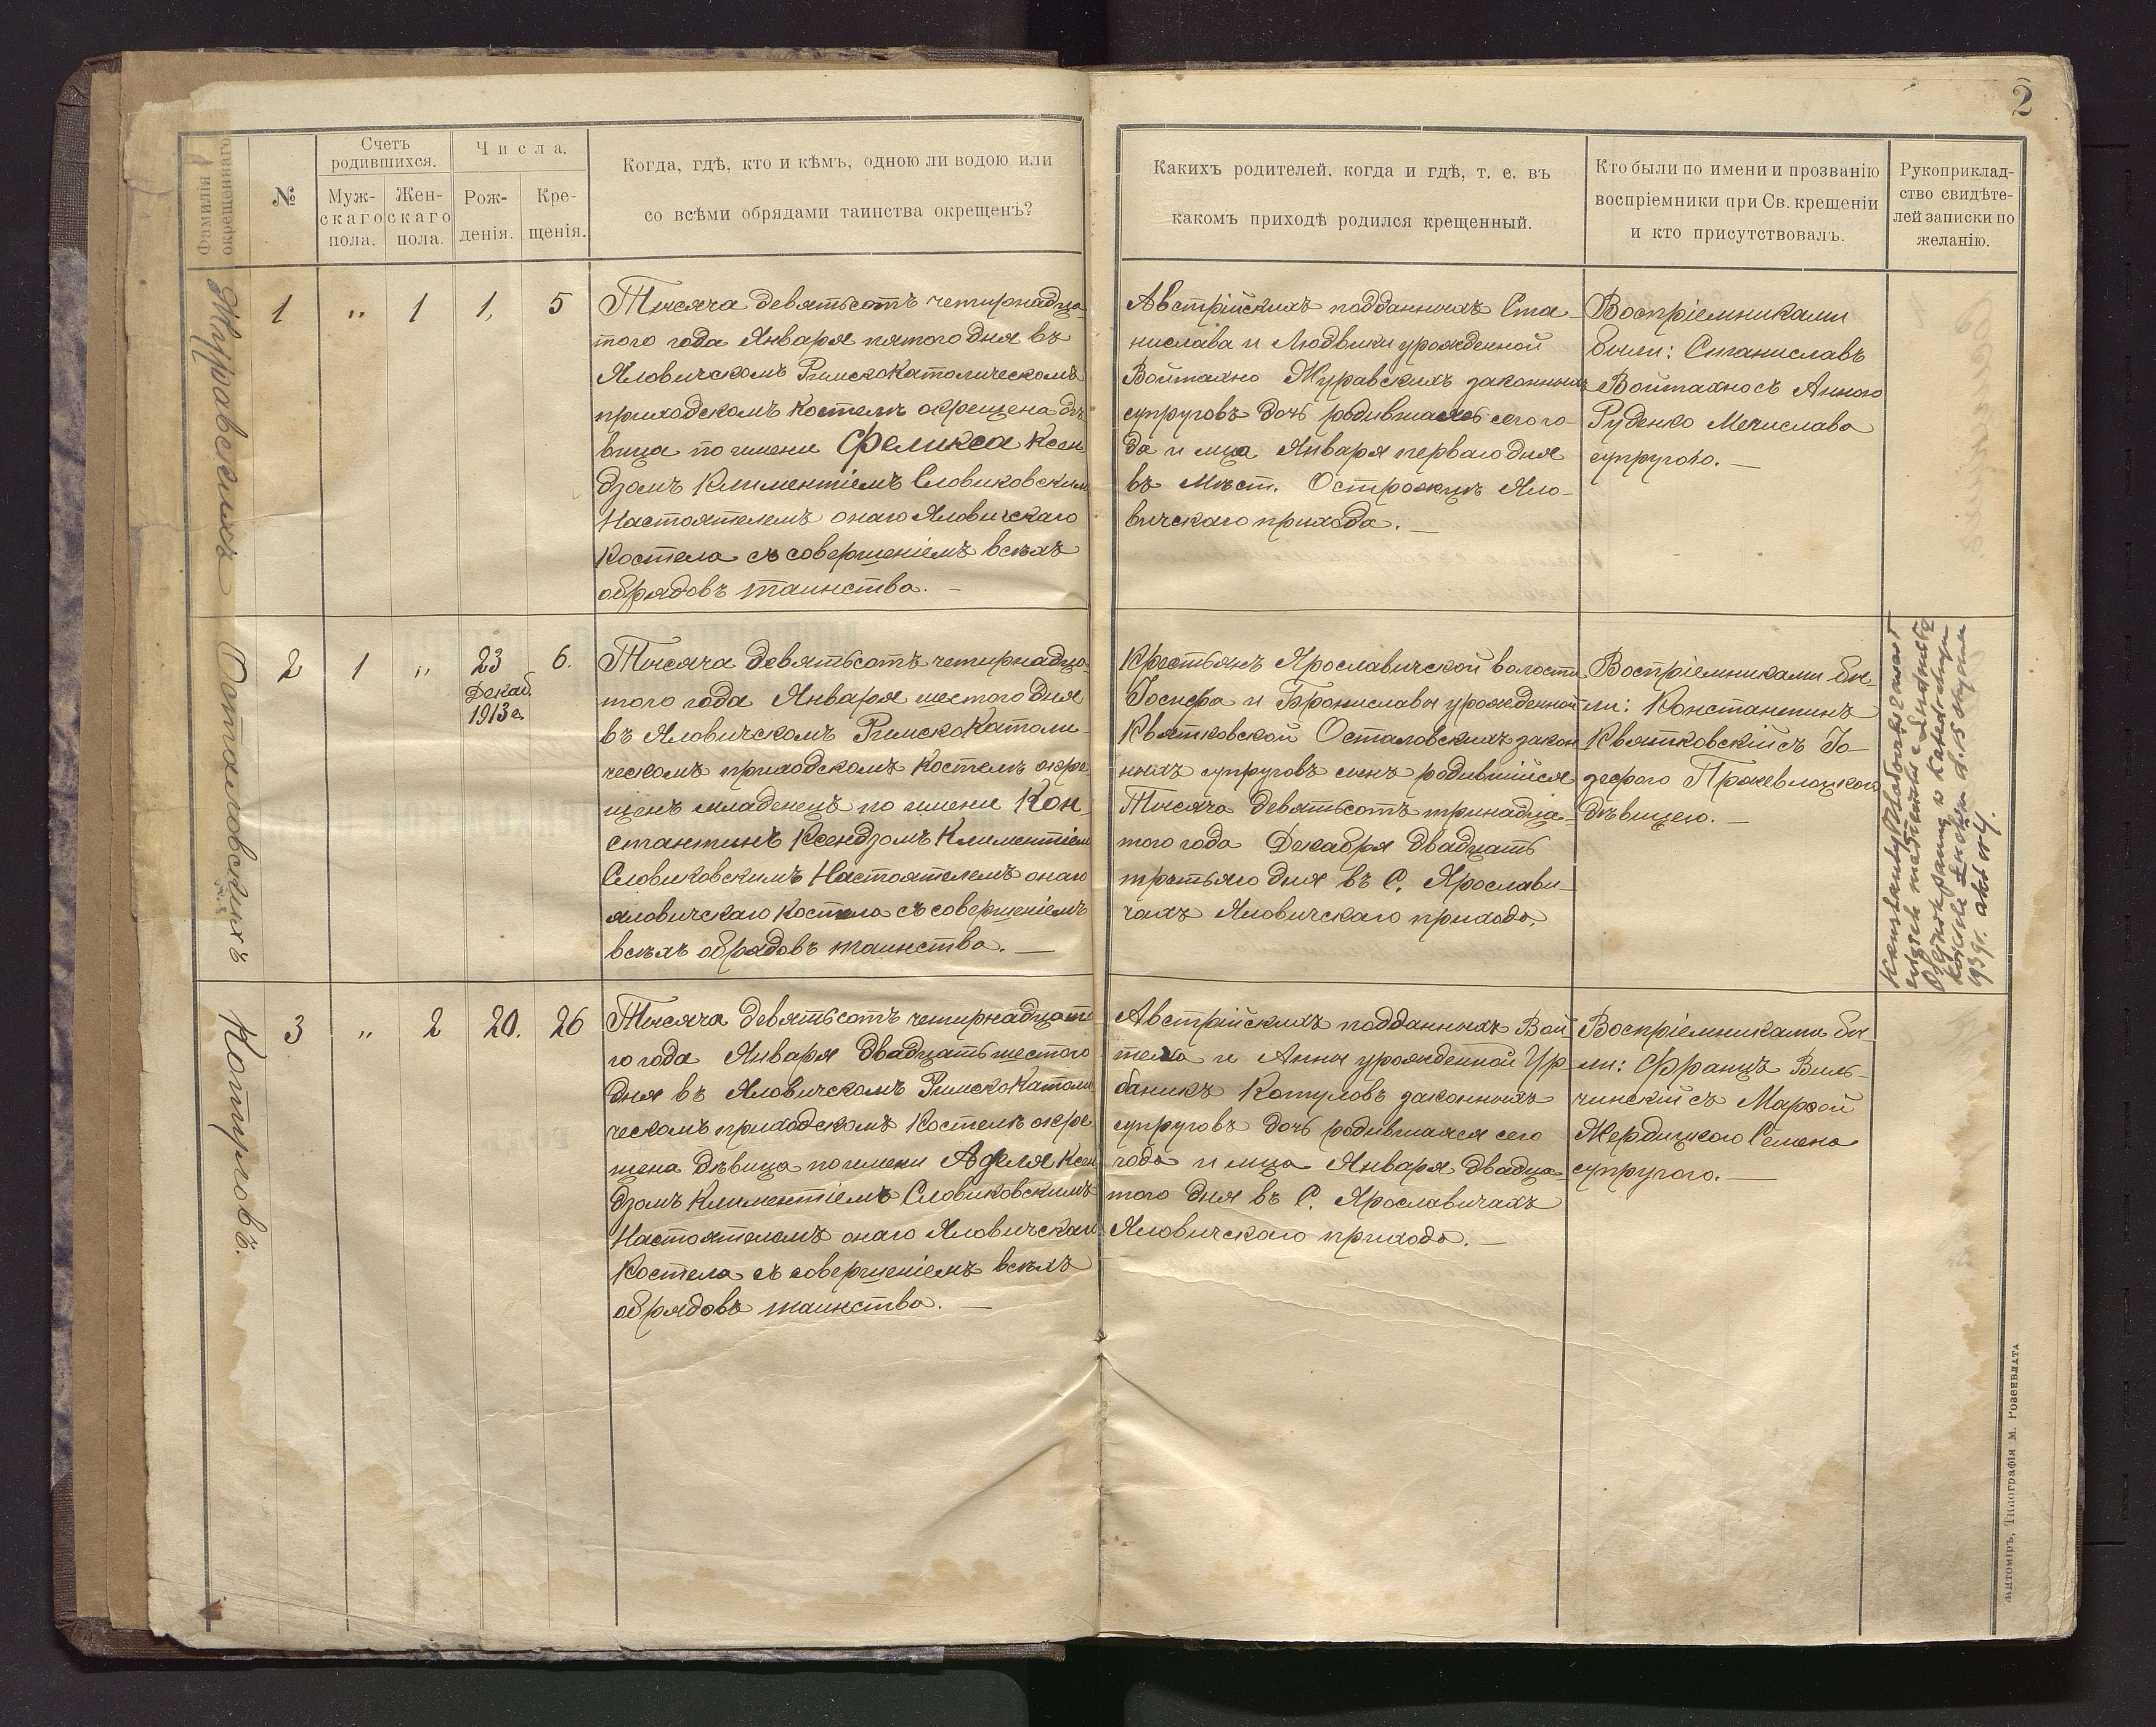 2
Фамилія окрещеннаго
№
Счетъ родившихся.
Муж-
скаго
пола.
Жен-
скаго
пола.
Числа.
Рож-
денія.
Кре-
щенія.
Когда, гдѣ, кто и кѣмъ, одною ли водою или
со всѣми обрядами таинства окрещенъ?
Какихъ родителей, когда и гдѣ, т. е. въ
какомъ приходѣ родился крещенный.
Кто были по имени и прозванію
воспріемники при Св. крещеніи
и кто присутствовалъ.
Рукоприклад-
ство свидѣте-
лей записки по
желанію.
Журавскихъ
1 " 1 1, 5
Тысяча девятьсотъ четырнадца-
того года Января пятого дня въ
Яловичскомъ РимскоКатолическомъ
приходскомъ костелѣ окрещена дѣ
вица по имени Феликса Ксен
дзомъ Климентіемъ Словиковским
Настоятелемъ онаго Яловичскаго
Костела съ совершеніемъ всѣхъ
обрядовъ таинства. —
Австрійскихъ подданныхъ Ста-
нислава и Людвики урожденной
Войтахно Журавскихъ законныхъ
супруговъ дочь родившаясь сего го-
да и мца Января перваго дня
въ Мѣст. Острожцѣ Яло-
вичскаго прихода. —
Воспріемниками
были: Станиславъ
Войтахно съ Анною
Руденко Мечислава
супругою. —
Осталовскихъ
2 1 " 23 6.
Декаб.
1913 г.
Тысяча девятьсотъ четырнадца-
того года Января шестого дня
въ Яловичскомъ РимскоКатоли-
ческомъ приходскомъ костелѣ окре
щенъ младенецъ по имени Кон-
стантинъ Ксендзомъ Климентіем
Словиковскимъ Настоятелемъ онаго
Яловичскаго костела съ совершеніемъ
всѣхъ обрядовъ таинства. —
Крестьянъ Ярославичской волости
Іосифа и Брониславы урожденной
Квятковской Осталовскихъ закон
ныхъ супруговъ сынъ родившійся
Тысяча девятьсотъ тринадца-
того года Декабря двадцать
третьяго дня въ С. Ярослави-
чахъ Яловичскаго прихода.
Воспріемниками бы-
ли: Константинъ
Квятковскій съ Іо-
зефою Пржевлоцкою
дѣвицею. —
939r. akt № 4.
Котуловъ.
3 " 2 20. 26
Тысяча девятьсотъ четырнадцато
го года Января двадцать шестого
дня въ Яловичскомъ РимскоКатоли
ческомъ приходскомъ Костелѣ окре
щена дѣвица по имени Аделя Ксен
дзомъ Климентіемъ Словиковскимъ
Настоятелемъ онаго Яловичскаго
Костела съ совершеніемъ всѣхъ
обрядовъ таинства. —
Австрійскихъ подданныхъ Вой-
теха и Анны урожденной Ур-
баникъ Котуловъ законныхъ
супруговъ дочь родившаяся сего
года и мца Января двадца-
того дня въ С. Ярославичахъ
Яловичского прихода. —
Воспріемниками бы-
ли: Францъ Виль-
чинскій съ Марѳой
Жердицкою Семена
супругою. —
Житоміръ, Типографія М. Розенблата